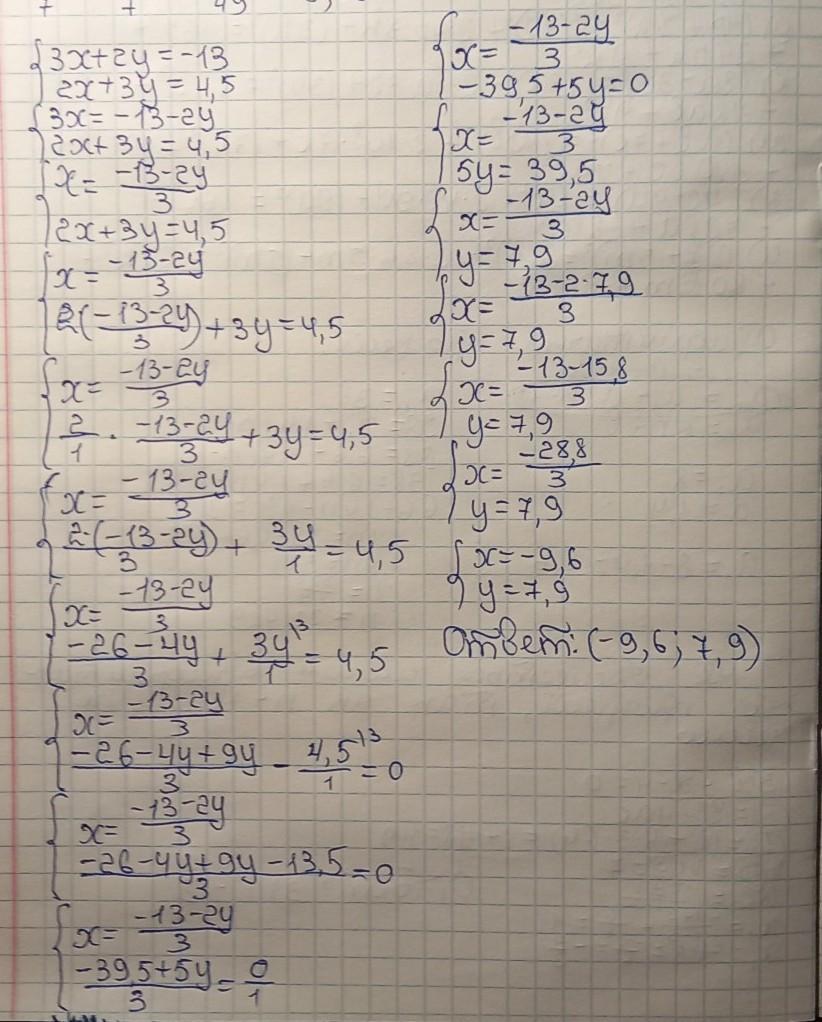 {3x+2y=-13
2x+3y=4,5
{3x=-13-2y
2x+3y=4,5
{x=(-13-2y)/3
2x+3y=4,5
{x=(-13-2y)/3
2((-13-2y)/3)+3y=4,5
{x=(-13-2y)/3
2/1·(-13-2y)/3+3y=4,5
{x=(-13-2y)/3
2·(-13-2y)/3+3y/1=4,5
{x=(-13-2y)/3
(-26-4y)/3+3y\3/1=4,5
{x=(-13-2y)/3
(-26-4y+9y)/3-4,5\3/1=0
{x=(-13-2y)/3
(-26-4y+9y-13,5)/3=0
{x=(-13-2y)/3
(-39,5+5y)/3=0/1
{x=(-13-2y)/3
-39,5+5y=0
{x=(-13-2y)/3
5y=39,5
{x=(-13-2y)/3
y=7,9
{x=(-13-2·7,9)/3
y=7,9
{x=(-13-15,8)/3
y=7,9
{x=-28,8/3
y=7,9
{x=-9,6
y=7,9
Ответ: (-9,6; 7,9)